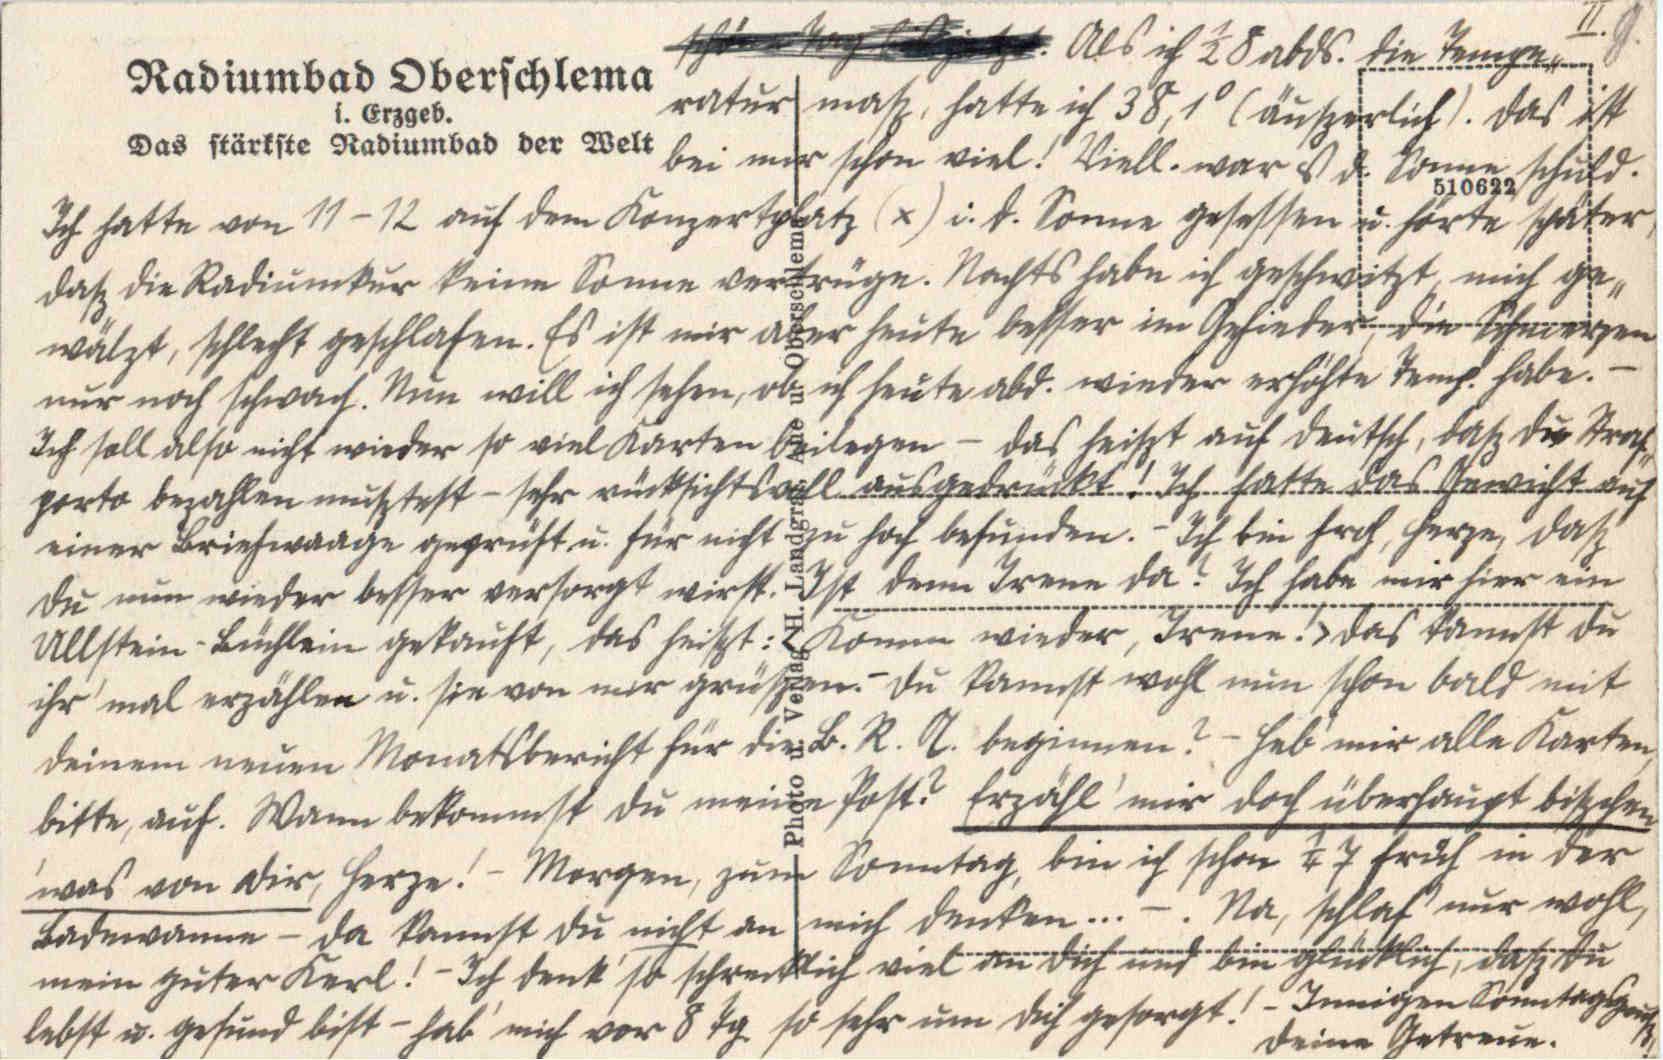 II. g.
Radiumbad Oberschlema
i. Erzgeb.
Das stärkste Radiumbad der Welt
Als ich ½8 abds. die Tempe„
ratur maß, hatte ich 38,1° (äußerlich). Das ist
bei mir schon viel! Viell. war's d. Sonne schuld.
510622
Ich hatte von 11-12 auf dem Konzertplatz (x) i. d. Sonne gesessen u. hörte später,
daß die Radiumkur keine Sonne vertrüge. Nachts habe ich geschwitzt, mich ge„
wälzt, schlecht geschlafen. Es ist mir aber heute besser im Gefieder, die Schmerzen
nur noch schwach. Nun will ich sehen, ob ich heute abd. wieder erhöhte Temp. habe. –
Ich soll also nicht wieder so viel Karten beilegen – das heißt auf deutsch, daß Du Straf„
porto bezahlen mußtest – sehr rücksichtsvoll ausgedrückt! Ich hatte das Gewicht auf
einer Briefwaage geprüft u. für nicht zu hoch befunden. – Ich bin froh, Herze, daß
Du nun wieder besser versorgt wirst. Ist denn Irene da? Ich habe mir hier ein
Ullstein-Büchlein gekauft, das heißt: <Komm wieder, Irene!> Das kannst Du
ihr 'mal erzählen u. sie von mir grüßen. – Du kannst wohl nun schon bald mit
Deinem neuen Monatsbericht für die B. R. A. beginnen? – Heb' mir alle Karten,
bitte, auf. Wann bekommst Du meine Post? Erzähl' mir doch überhaupt bißchen
'was von Dir, Herze! – Morgen, zum Sonntag, bin ich schon ¼7 früh in der
Badewanne – da kannst Du nicht an mich denken... – . Na, schlaf' nur wohl,
mein guter Kerl! – Ich denk' so schrecklich viel an Dich und bin glücklich, daß Du
lebst u. gesund bist – hab' mich vor 8 Tg. so sehr um Dich gesorgt! – Innigen Sonntagsgruß!
Deine Getreue.
Photo u. Verlag H. Landgraf, Aue u. Oberschlema